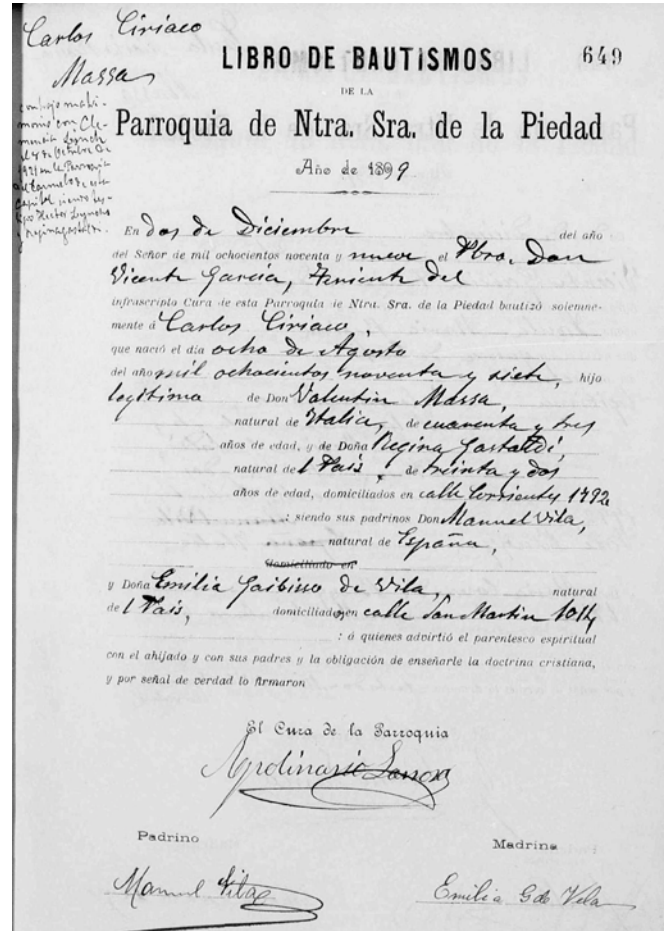 Carlos Ciriaco
Massa
contrajo matri-
monio con Cle-
mencia Lynch
el 4 de Octubre de
1921 en la Parroquia
del Carmelo de esta
Capital siendo tes-
tigos Hector Lynch
y Regina Gastaldi.
LIBRO DE BAUTISMOS 649
DE LA
Parroquia de Ntra. Sra. de la Piedad
Año de 1899
En dos de Diciembre del año
del Señor de mil ochocientos noventa y nueve el Pbro. Don
Vicente García, Teniente del
infrascripto Cura de esta Parroquia de Ntra. Sra. de la Piedad bautizó solemne-
mente á Carlos Ciriaco,
que nació el dia ocho de Agosto
del año mil ochocientos noventa y siete, hijo
legítimo de Don Valentin Massa,
natural de Italia, de cuarenta y tres
años de edad, y de Doña Regina Gastaldi,
natural del Pais, de treinta y dos
años de edad, domiciliados en calle Corrientes 1792
: siendo sus padrinos Don Manuel Vila,
natural de España,
domiciliado en
y Doña Emilia Gaibisso de Vila, natural
del Pais, domiciliados en calle San Martin 1014
: á quienes advirtió el parentesco espiritual
con el ahijado y con sus padres y la obligación de enseñarle la doctrina cristiana,
y por señal de verdad lo firmaron
El Cura de la Parroquia
Apolinario
Padrino Madrina
Manuel Vila Emilia G de Vila